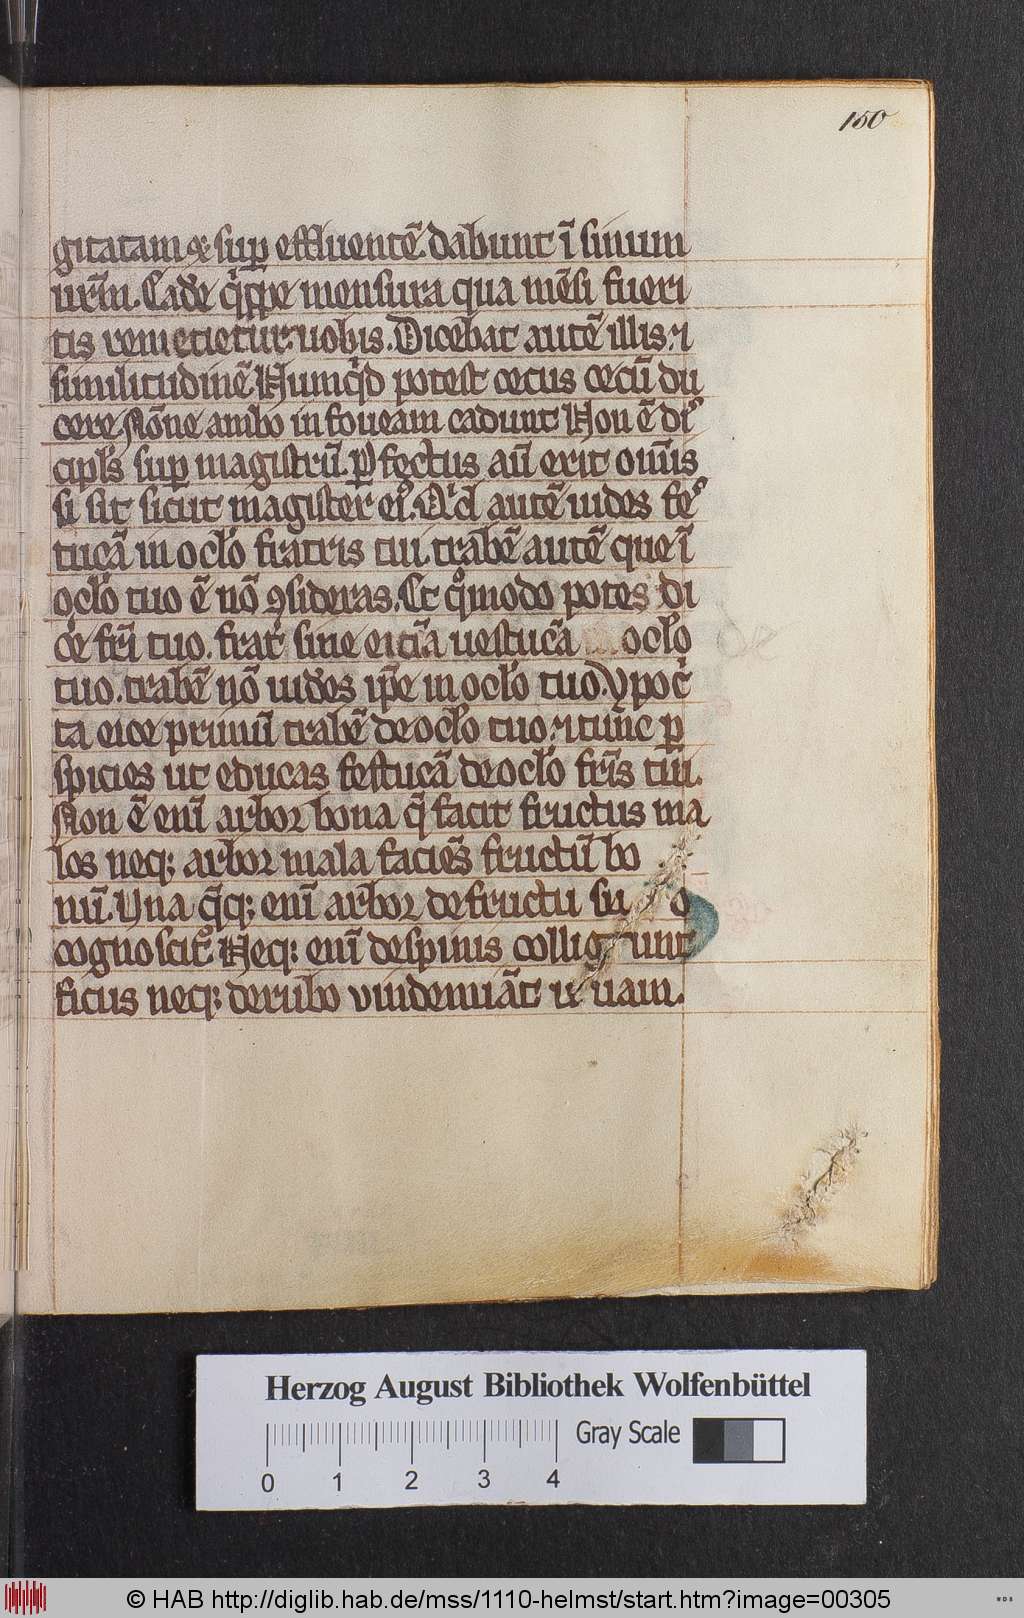 150
gitatam ⁊ suꝑ effluentē dabunt ī sinum
ur̄m. Eadē qͥppe mensura qua mēsi fueri
tis remetietur uobis. Dicebat autē illis ⁊
similitudinē Numqͥd potest cecus cecū du
cere Nōne ambo in foueam cadunt Non ē diꝰ
cipl̓s suꝑ magistrū. Ꝑfectus aū erit omīs
si sit sicut magister eiꝰ. Qͥd autē uides feꝰ
tucā in oclo̓ fratris tui. trabē autē que ī
oclo̓ tuo ē nō ꝯsideras. Et qͦmodo potes di
ce̓ fr̄i tuo. frat̓ sine eiciā uestucā oclo̓
tuo. trabē nō uides ip̄e in oclo̓ tuo. ypoc̓
ta eice primū trabē de oclo̓ tuo. ⁊ tunc ꝑ
spicies ut educas festucā de oclo̓ fr̄is tui.
Non ē enī arbor bona q̄ facit fructus ma
los neqꝫ arbor mala faciēs fructū bo
nū. Una q̄qꝫ enī arbor de fructu su o
cognoscit᷑. Neqꝫ enī de spinis collig unt
ficus neqꝫ de rubo vindemiāt u uam.
Herzog August Bibliothek Wolfenbüttel
Gray Scale
0 1 2 3 4
© HAB http://diglib.hab.de/mss/1110-helmst/start.htm?image=00305